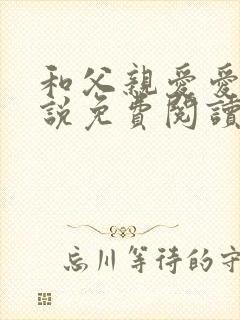 和父親愛愛
説免費閱讀
忘川等待的守